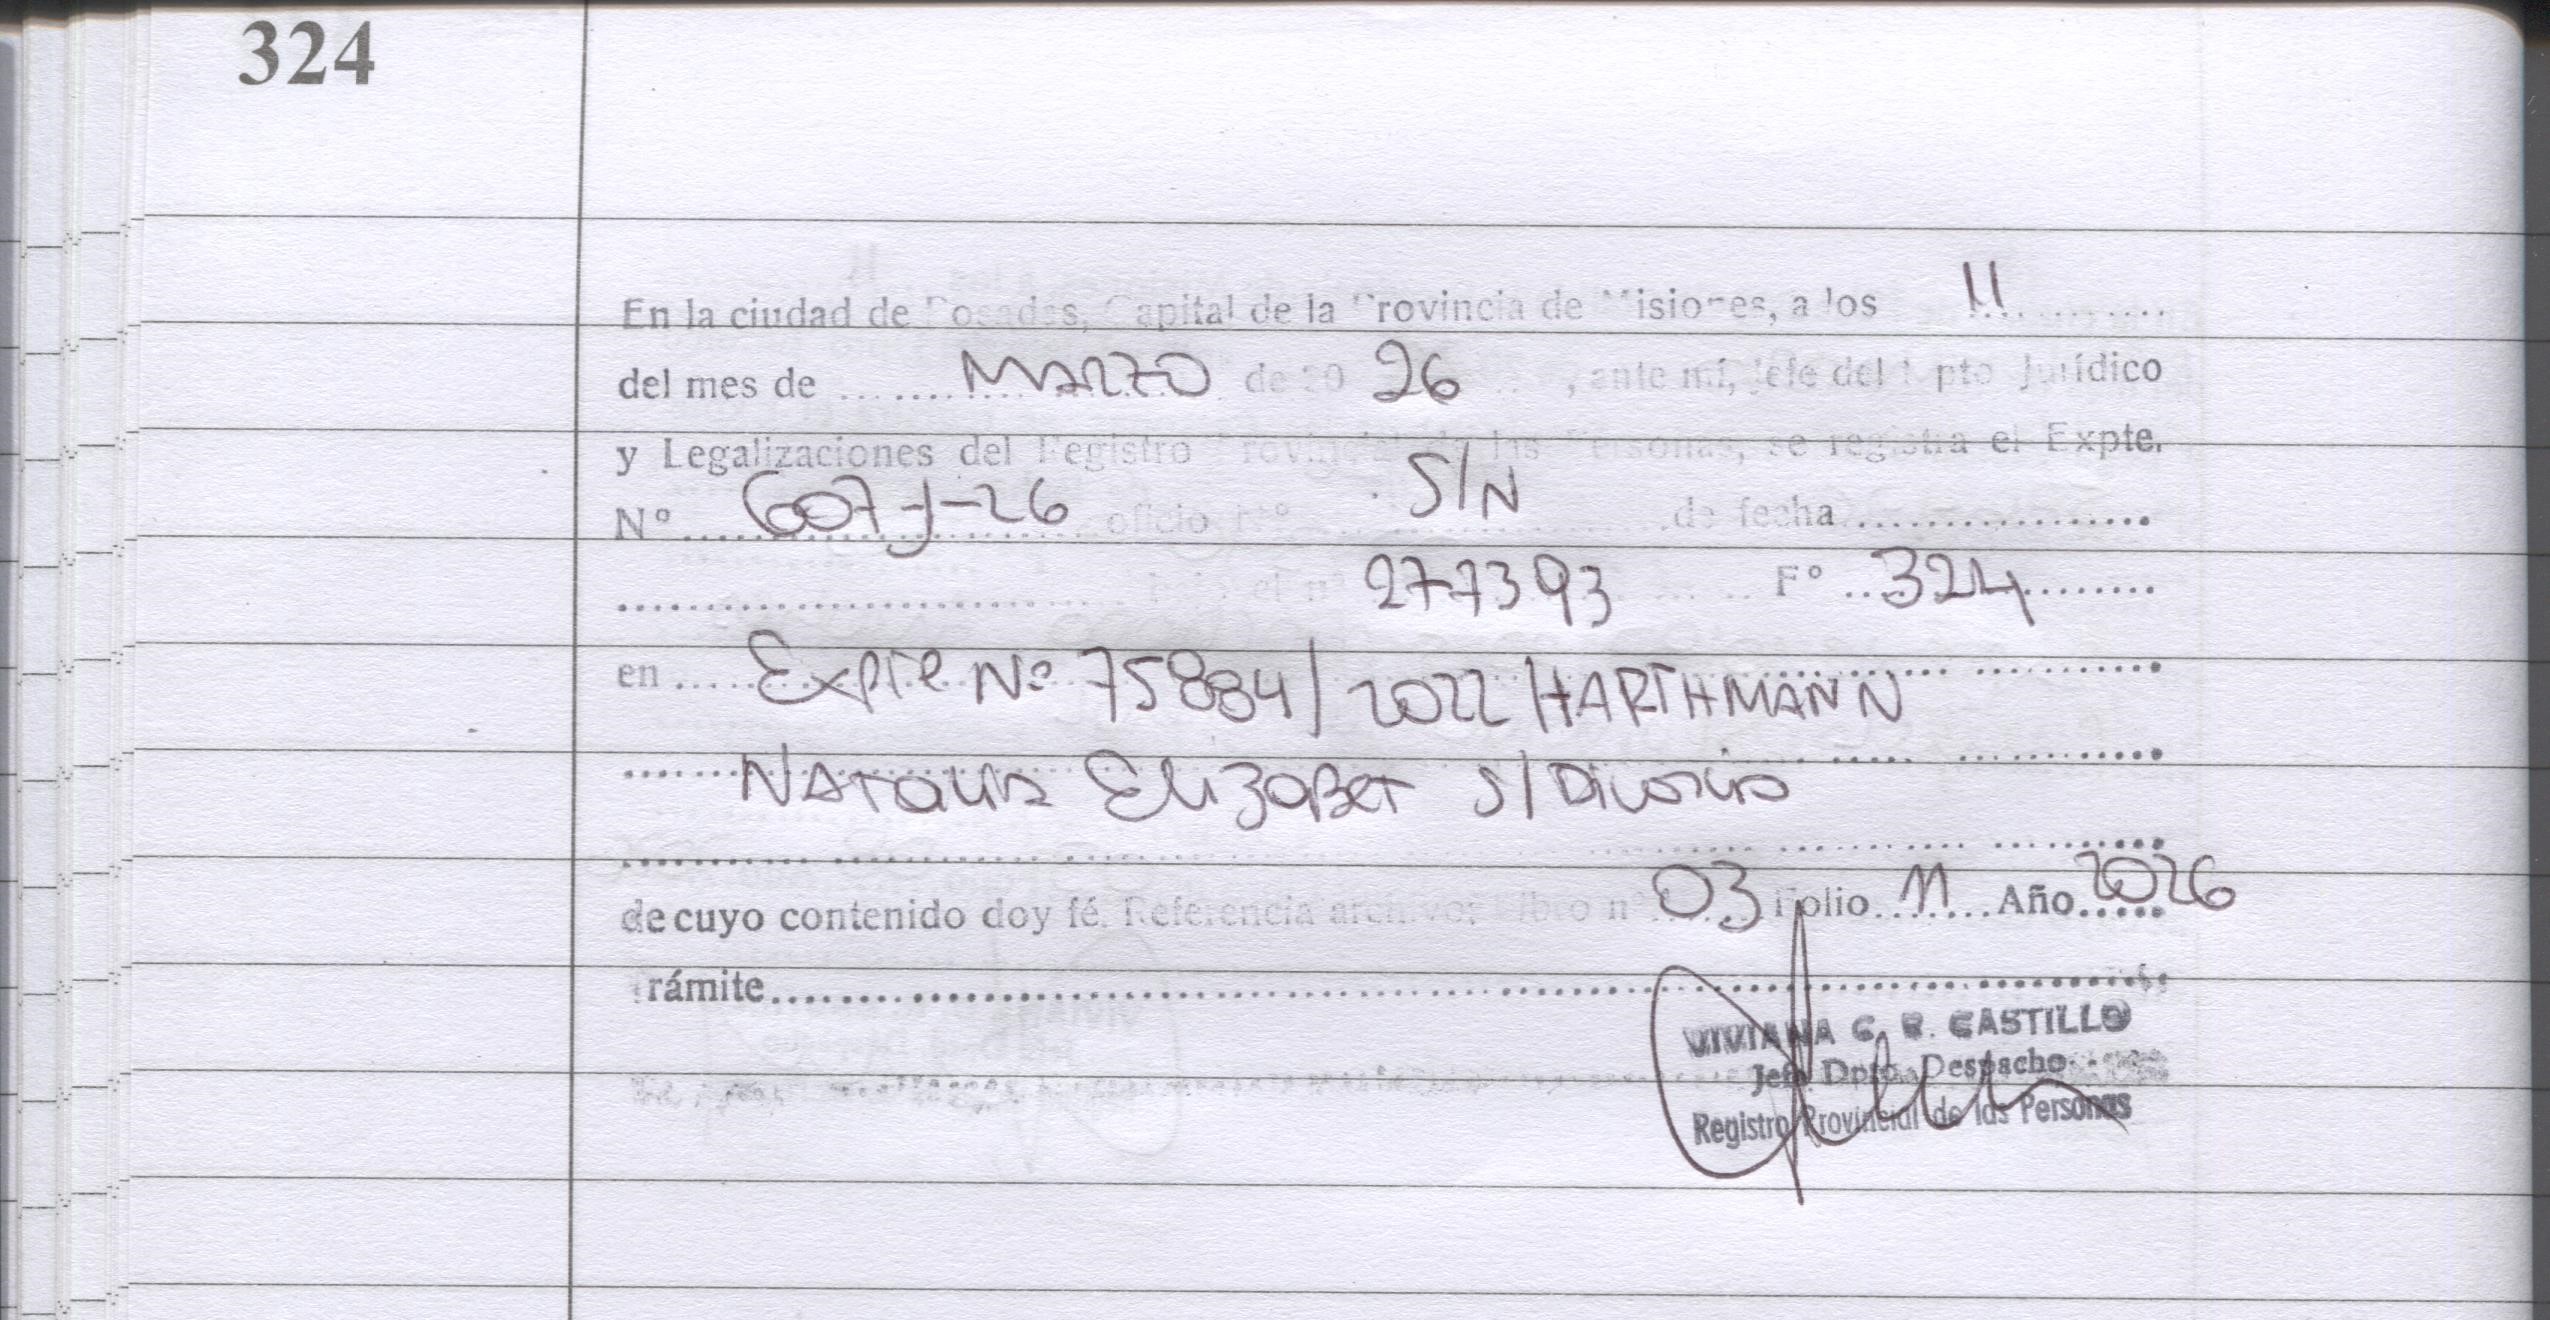 324
En la ciudad de Posadas, Capital de la Provincia de Misiones, a los 11
del mes de MARZO de 20 26, ante mí, Jefe del Dpto Jurídico
y Legalizaciones del Registro Provincial de las Personas, se registra el Expte.
Nº 607-J-26 oficio Nº S/N de fecha
bajo el nº 277393 Fº 324
en Expte Nº 75884/2022 HARTHMANN
NATALIA ELIZABET S/Divorcio
de cuyo contenido doy fé. Referencia archivo: Libro nº 03 Folio 11 Año 2026
Trámite
VIVIANA C. R. CASTILLO
Jefa Dpto. Despacho
Registro Provincial de las Personas